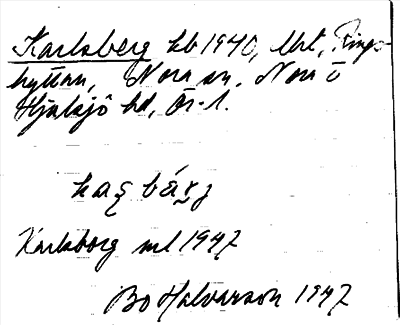 Karlsberg kb 1940, Uht, Rings-
hyttan, Nora sn, Nora o
Hjulsjö hd, Ör-l.
Karlsborg ml 1947
Bo Halvarson 1947